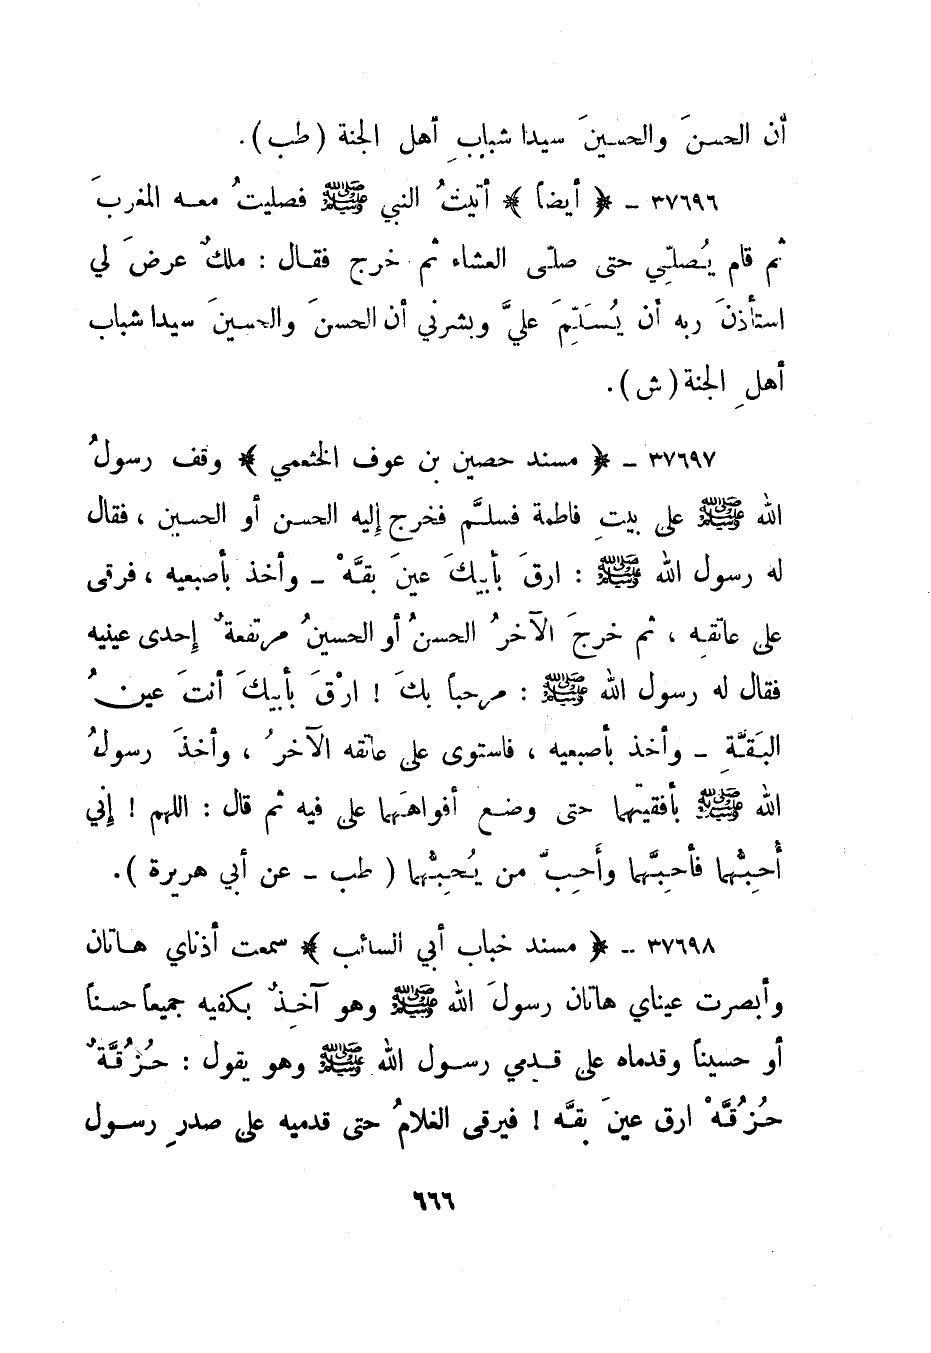 أن الحسنَ والحسينَ سيدا شبابِ أهل الجنة (طب).
٣٧٦٩٦ ـ ﴿ أيضاً ﴾ أتيتُ النبي ﷺ فصليتُ معه المغربَ
ثم قام يُصلّي حتى صلّى العشاء ثم خرج فقال : ملكٌ عرضَ لي
استأذنَ ربه أن يُسَلِّمَ عليَّ وبشرني أن الحسنَ والحسينَ سيدا شباب
أهلِ الجنة (ش).
٣٧٦٩٧ ـ ﴿ مسند حصين بن عوف الخثعمي ﴾ وقف رسولُ
الله ﷺ على بيتِ فاطمة فسلَّم فخرج إليه الحسن أو الحسين ، فقال
له رسول الله ﷺ : ارقَ بأبيكَ عينَ بقَّهْ ـ وأخذ بأصبعيه ، فرقى
على عاتقه ، ثم خرجَ الآخرُ الحسنُ أو الحسينُ مرتفعةٌ إحدى عينيه
فقال له رسول الله ﷺ : مرحباً بكَ ! ارْقَ بأبيكَ أنتَ عينُ
البَقَّةِ ـ وأخذ بأصبعيه ، فاستوى على عاتقه الآخرُ ، وأخذَ رسولُ
الله ﷺ بأقفيتهما حتى وضع أفواهَهما على فيه ثم قال : اللهم ! إني
أُحبُّهما فأحبَّهما وأَحِبَّ من يُحبُّهما ( طب ـ عن أبي هريرة ).
٣٧٦٩٨ ـ ﴿ مسند خباب أبي السائب ﴾ سمعت أذناي هاتان
وأبصرت عيناي هاتان رسولَ الله ﷺ وهو آخِذٌ بكفيه جميعاً حسناً
أو حسيناً وقدماه على قدمي رسول الله ﷺ وهو يقول : حُزُقَّةٌ
حُزُقَّهْ ارق عينَ بقَّه ! فيرقى الغلامُ حتى قدميه على صدرِ رسول
٦٦٦